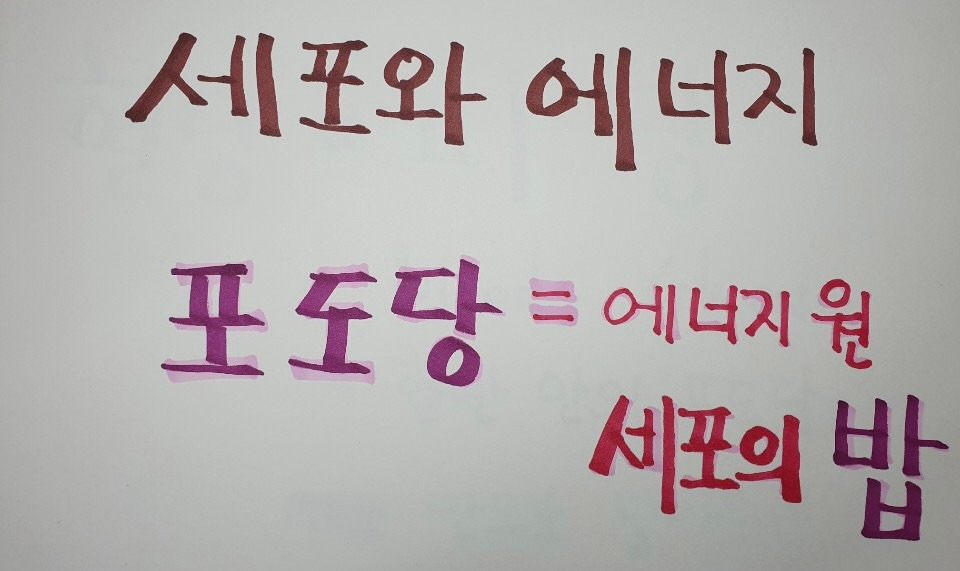 세포와 에너지
포도당 = 에너지원
세포의 밥